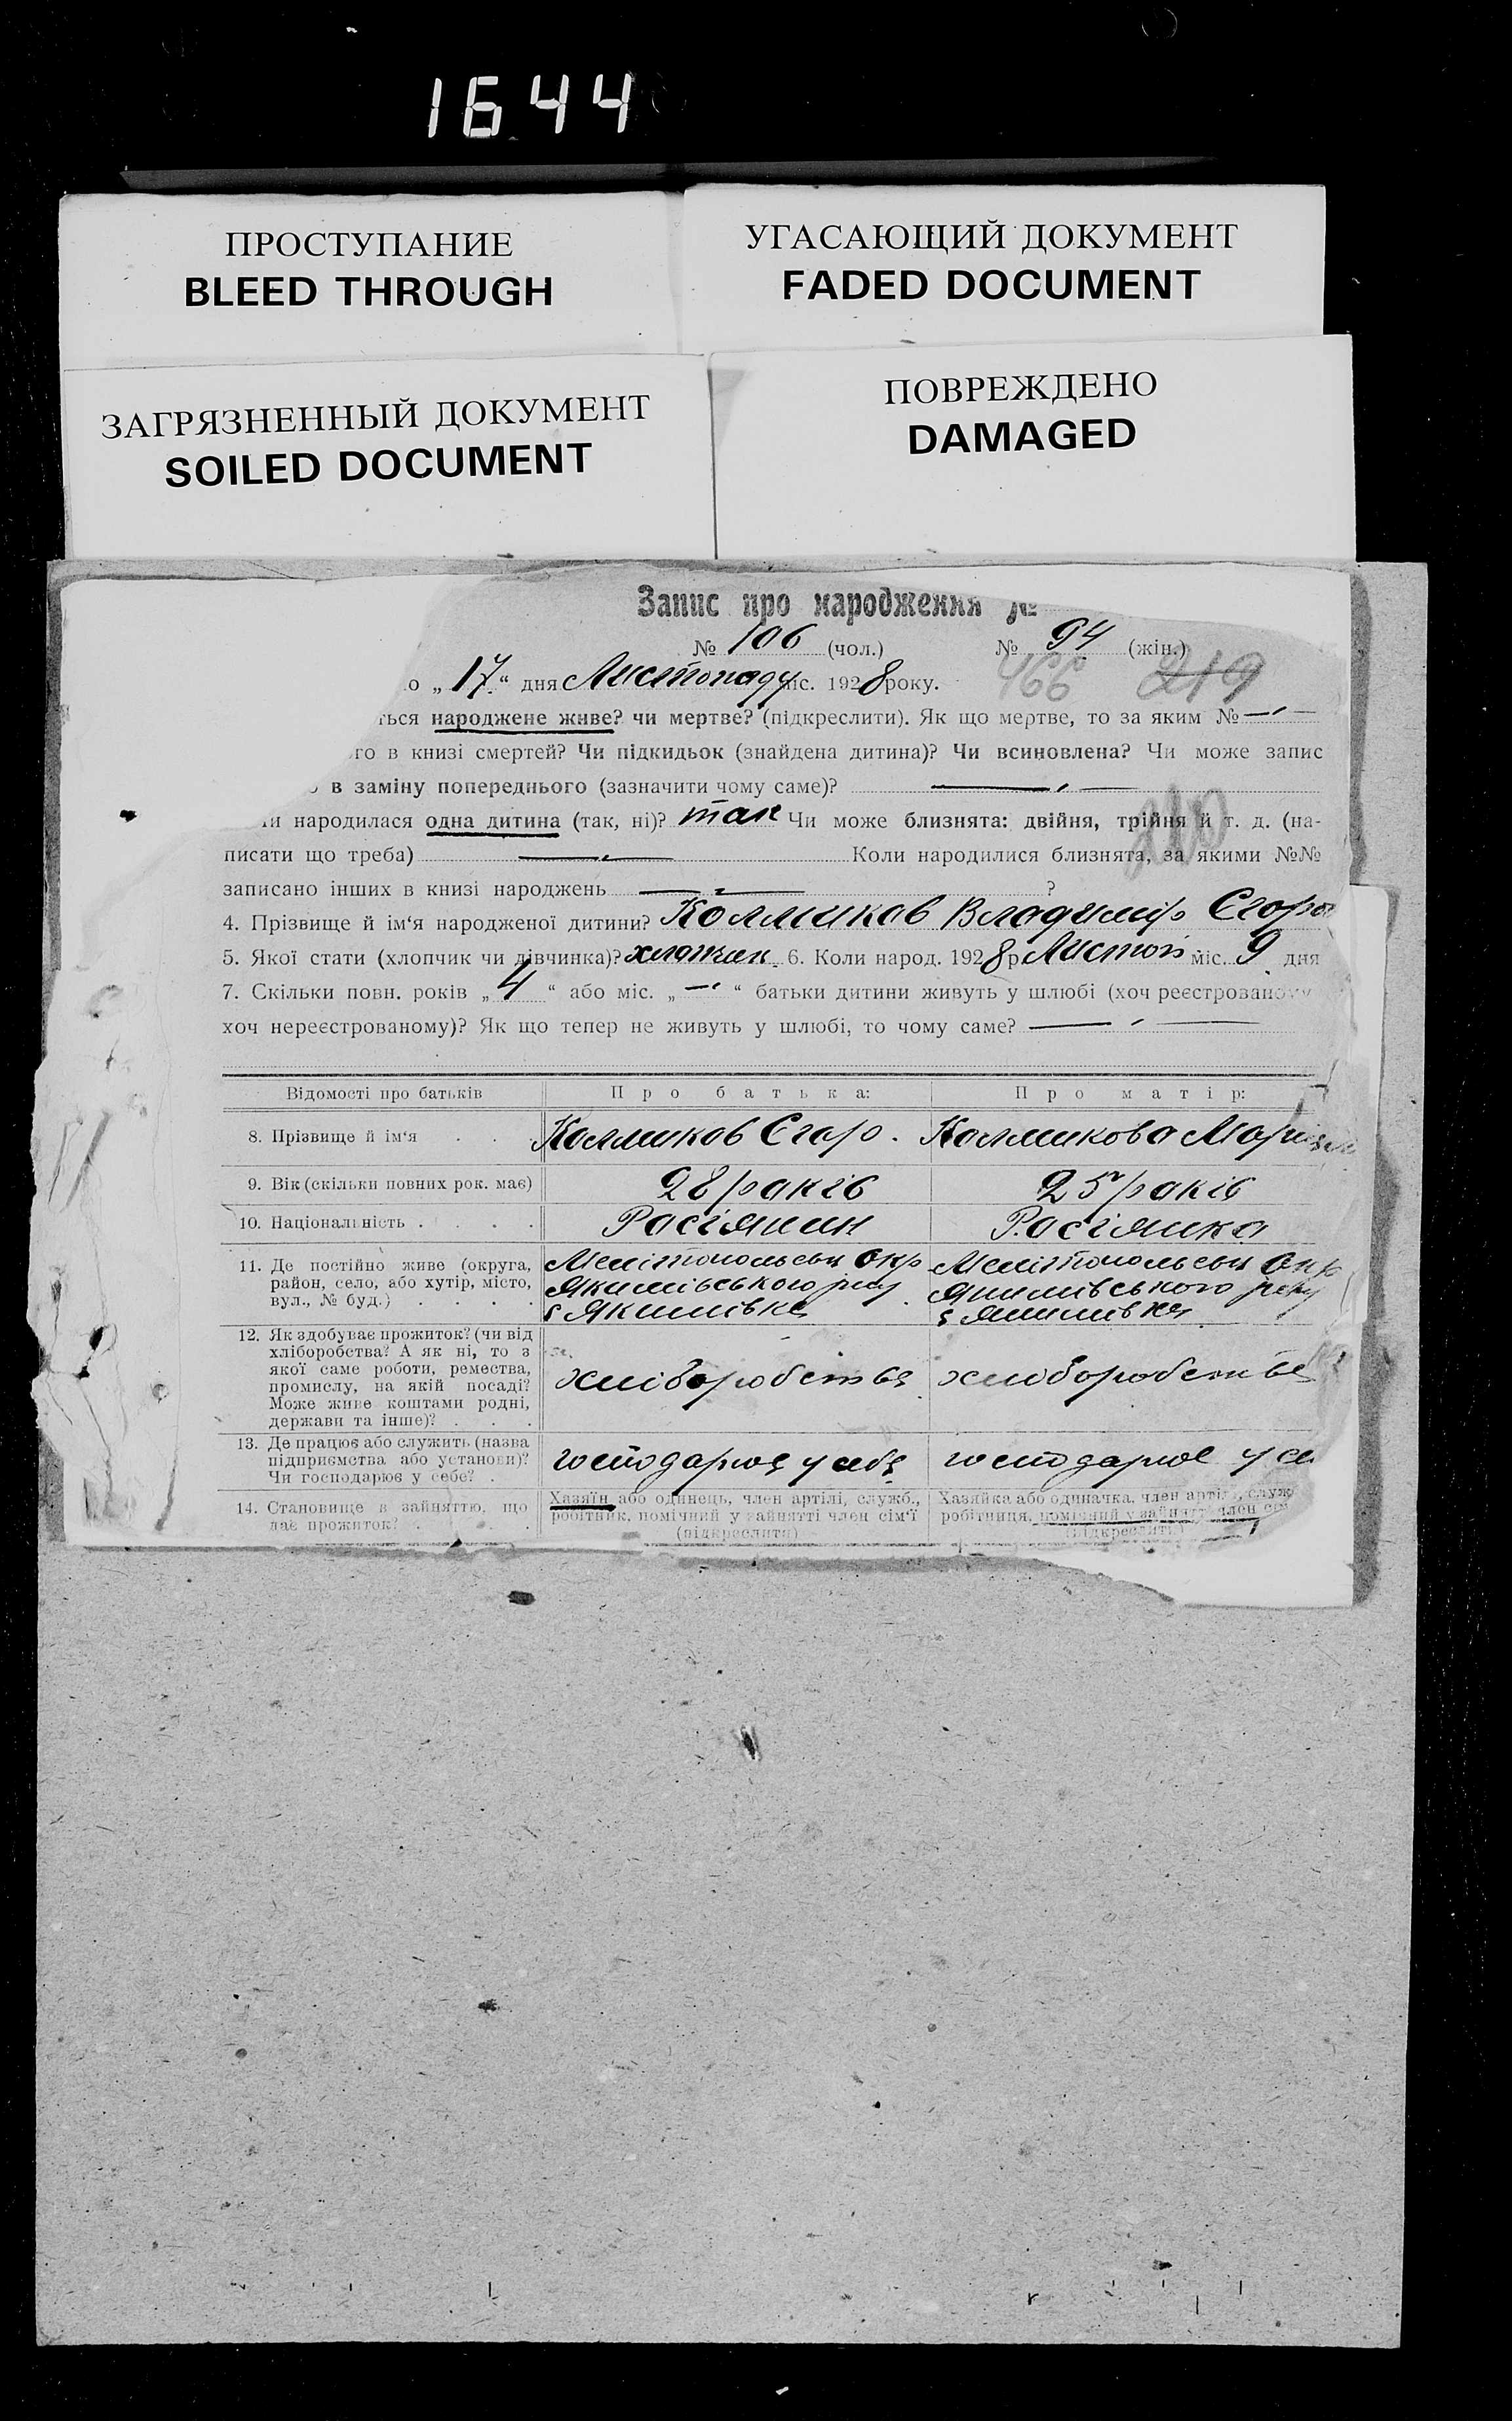 1644
ПРОСТУПАНИЕ
BLEED THROUGH
УГАСАЮЩИЙ ДОКУМЕНТ
FADED DOCUMENT
ЗАГРЯЗНЕННЫЙ ДОКУМЕНТ
SOILED DOCUMENT
ПОВРЕЖДЕНО
DAMAGED
Запис про народження №
№ 106 (чол.) № 94 (жін.)
о „17“ дня Листопаду міс. 1928 року. 466 219
ться народжене живе? чи мертве? (підкреслити). Як що мертве, то за яким № —
го в книзі смертей? Чи підкидьок (знайдена дитина)? Чи всиновлена? Чи може запис
в заміну попереднього (зазначити чому саме)? —
и народилася одна дитина (так, ні)? так Чи може близнята: двійня, трійня й т. д. (на-
210
писати що треба) — Коли народилися близнята, за якими №№
записано інших в книзі народжень — ?
4. Прізвище й ім‘я народженої дитини? Колмиков Владимір Єгоро
5. Якої стати (хлопчик чи дівчинка)? хлопчик 6. Коли народ. 1928 р. Листоп міс. 9 дня
7. Скільки повн. років „4“ або міс. „—“ батьки дитини живуть у шлюбі (хоч реєстрованому
хоч нереєстрованому)? Як що тепер не живуть у шлюбі, то чому саме? —
Відомості про батьків Про батька: Про матір:
8. Прізвище й ім‘я Колмиков Єгор. Колмикова Марія
9. Вік (скільки повних рок. має) 28 років 25 років
10. Національність Росіянин Росіянка
11. Де постійно живе (округа, район, село, або хутір, місто, вул., № буд.)
Мелітопольськ окр Мелітопольськ окр
Якимівського р-ну Якимівського р-ну
с Якимівка с Якимівка
12. Як здобуває прожиток? (чи від
хліборобства? А як ні, то з
якої саме роботи, ремества,
промислу, на якій посаді?
Може живе коштами родні,
держави та інше)?
хліборобства хліборобства
13. Де працює або служить (назва
підприємства або установи)?
Чи господарює у себе?
господарює у себе господарює у се
14. Становище в зайняттю, що
дає прожиток?
Хазяїн або одинець, член артілі, служб.,
робітник, помічний у зайнятті член сім‘ї
(підкреслити)
Хазяйка або одиначка, член артілі, служ
робітниця, помічний у зайнятті член сім
(підкреслити)